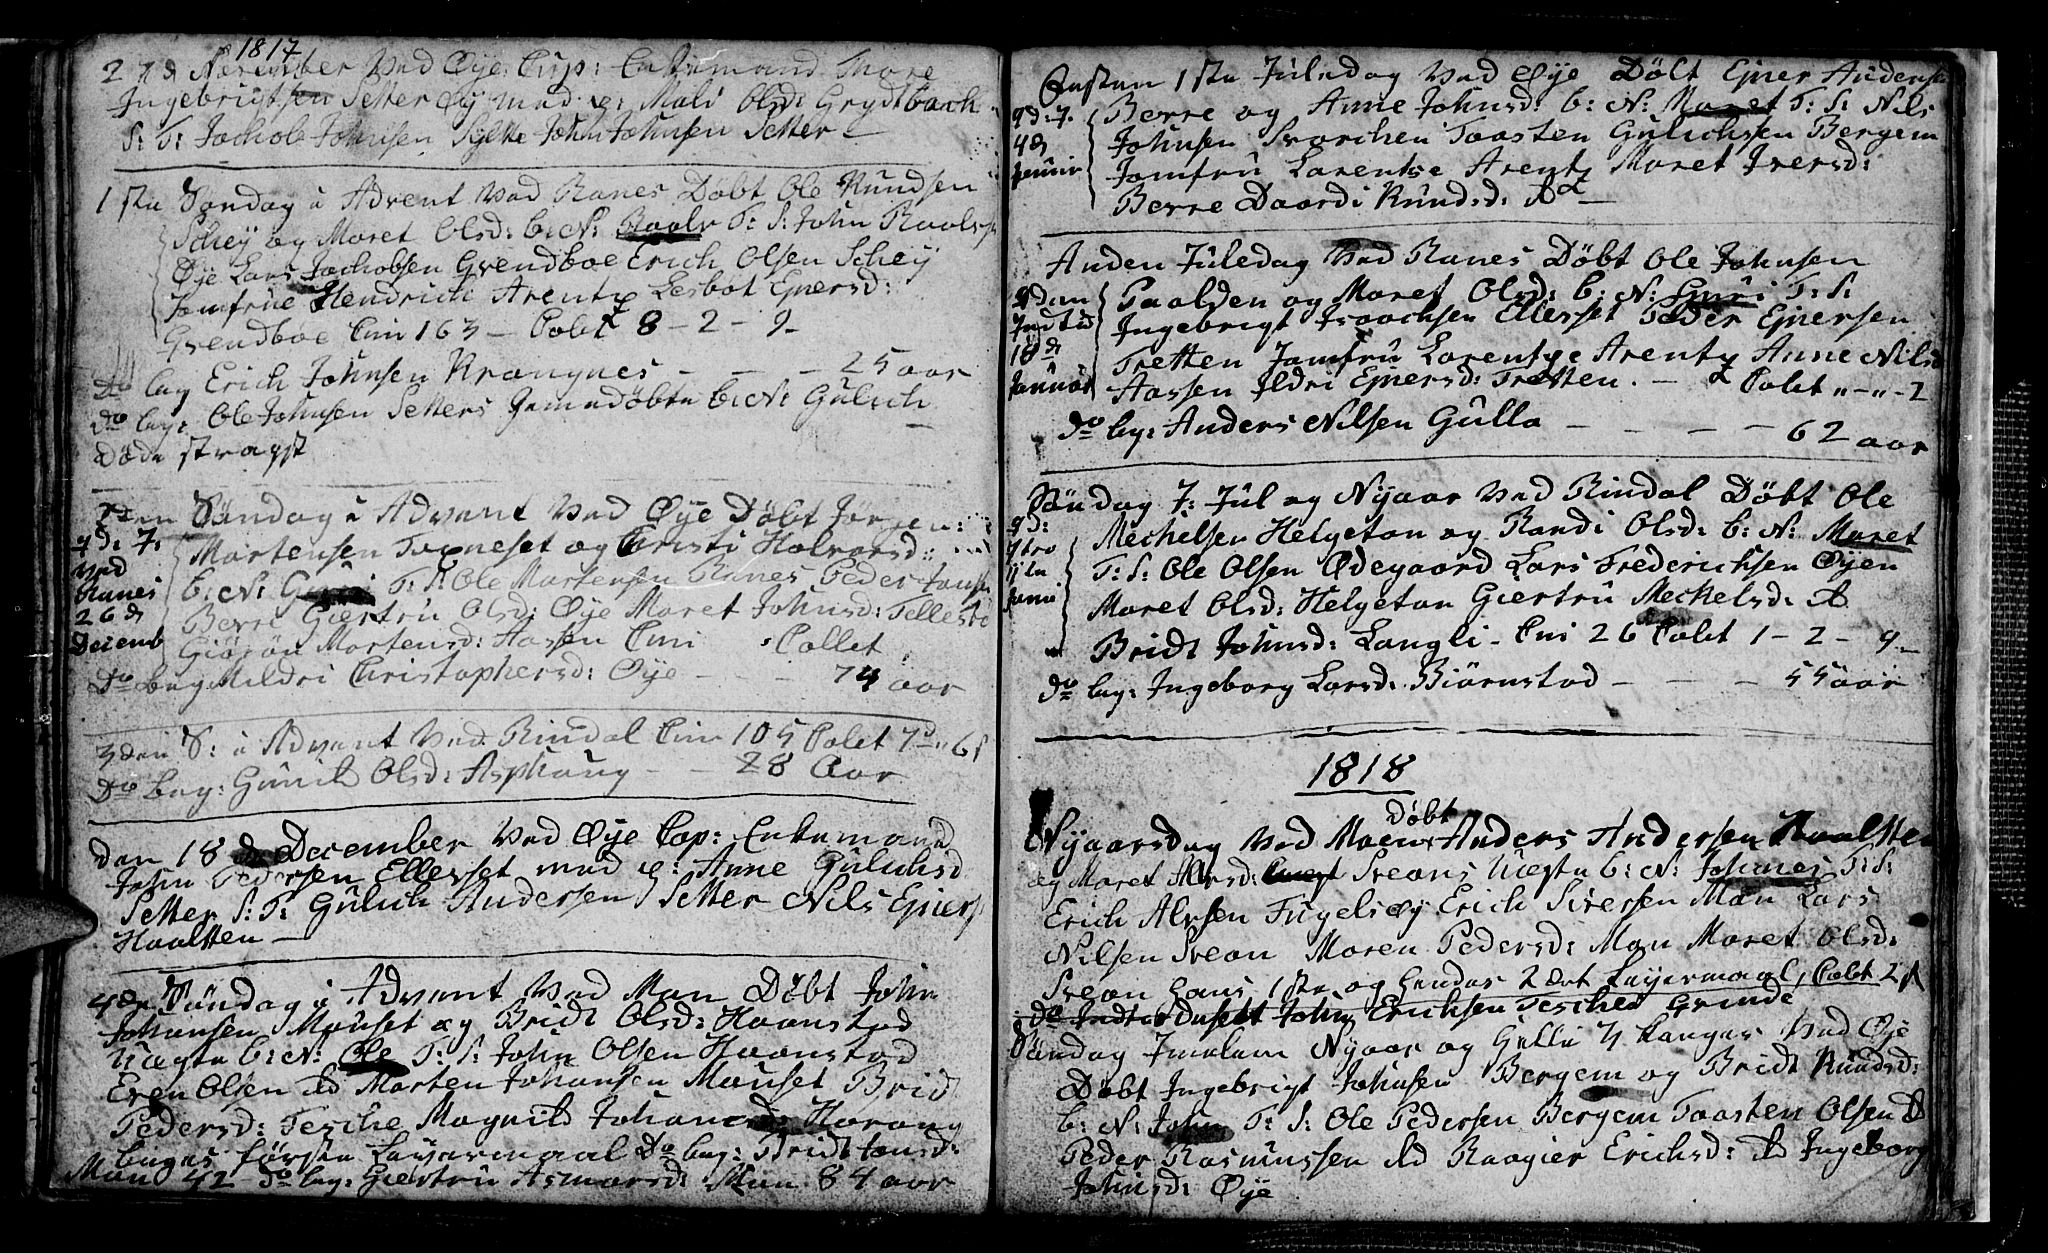 1817
27 d November Ved Øye Cop: Enkemand Thore
Ingebrigtsen Setter Øÿ med e: Mali Olsd: Grydtbach
S: T: Jachob Johnsen Sylte John Johnsen Setter
1 ste Søndag i Advent Ved Ranes Døbt Ole Knudsen
Schey og Maret Olsd: b: N: Roalv T: S: John Roals
Øye Lars Jachobsen Grendboe Erich Olsen Schey
Jomfrue Hendrich Arentz Lesbot Ejnersd:
Grendboe Cmi 163 - Colt 8 - 2 - 9
Do beg Erich Johnsen Krangnes - - - 25 aar
do beg: Ole Johnsen Setters Hiemedøbte b: N: Gulich
Døde stragst
2den Søndag i Advent Ved Øye Døbt Jørgen
g d: 7: Mortensen Torneset og Christi Halvorsd:
Ved
Ranes b: N: Guri T: S: Ole Mortensen Ranes Peder Jons
26 d Berre Giertru Olsd: Øye Maret Johnsd: Tellesbø
Decemb Giørøn Mortensd: Aasen Cmi Collet
do beg Mildri Christophersd: Øye - - - 74 aar
3den S: i Advent Ved Rindal Cmi 105 Colet 7 d 6 s
Do beg: Gunild Olsd: Asphaug - - 28 Aar
den 18 d December Ved Øye Cop: Enkemand
John Pedersen Ellesset med e: Anne Gulichsd
Setter S: T: Gulich Andersen Setter Nils Ejners
Haaltten
4de Søndag i Advent Ved Moen Døbt John
Johansen Mauset og Bridt Olsd: Haanstad
Uægte b: N: Ole T: S: John Olsen Haanstad
Even Olsen ibd Morten Johansen Mauset Brid
Pedersd: Tesche Magnild Johansd: Harang
begges første Leyermaal Do beg: Bridt Jonsd:
Moen 42 do beg: Giertru Asmarsd: Moen 84 aar
Christen 1ste Juledag Ved Øye Døbt Ejner Andersen
g d: 7. Berre og Anne Johnsd: b: N: Maret T: S: Nils
4 d Johnsen Svorchen Taasten Gulichsen Bergem
Jenuir Jomfru Lorentse Arentz Maret Iversd:
Berre Daardi Knudsd: do
Anden Juledag Ved Ranes Døbt Ole Johnsen
Taalden og Maret Olsd: b: N: Guri T: S:
Indtid Ingebrigt Isaachsen Ellesset Peder Ejnersen
18 d Tretten Jomfru Lorentse Arentz Anne Nilsd
Januar Aassen Ildri Ejnersd: Tretten. - Colet " - " - 2
do beg: Anders Nilsen Gulla - - - - 62 aar
Søndag 7: Jul og Nyaar Ved Rindal Døbt Ole
g d: Mechelsen Helgeton og Randi Olsd: b: N: Maret
T: S: Ole Olsen Ødegaard Lars Frederichsen Øyen
Maret Olsd: Helgeton Giertru Mechelsd: do
Bridt Johnsd: Langli - Cmi 26 Colet 1 - 2 - 9
do beg: Ingeborg Larsd: Biørnstad - - - 55 aar
1818
Døbt
Nyaarsdag Ved Moen Anders Andersen Haaltten
og Maret Alvsd: Sveans Uægte b: N: Johanes T: S:
Erich Alvsen Fugelsøy Erich Siversen Moen Lars
Nilsen Svean Maren Pedersd: Moen Maret Olsd:
Svean hans 1ste og hendes 2det Leyermaal, Colet 2 s
John Erichsen Tesche Grinde
Søndag Imellem Nyaar og Hellig 3 Konger Ved Øye
Døbt Ingebrigt Johnsen Bergem og Bridt Knudsd:
b: N: John T: S: Ole Pedersen Bergem Taasten Olsen do
Peder Rasmussen ibd Raagier Erichsd: ibd Ingeborg
Johnsd: Øye